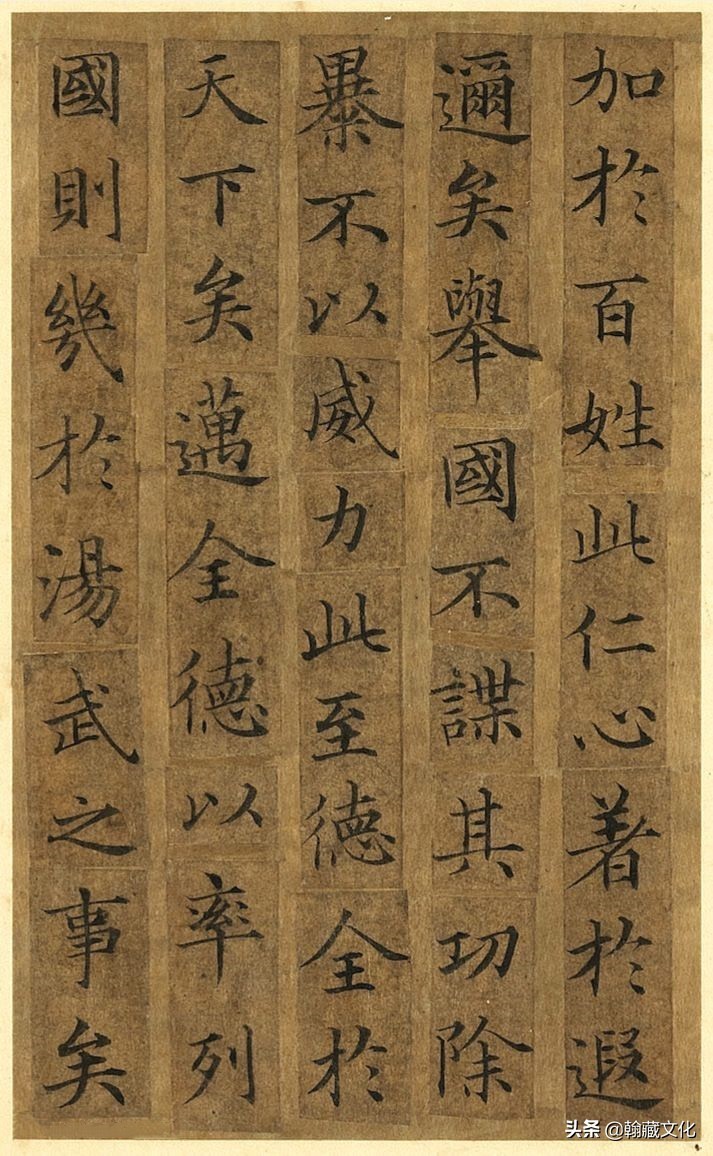 加於百姓此仁心著於遐
邇矣舉國不謀其功除
暴不以威力此至德全於
天下矣邁全德以率列
國則幾於湯武之事矣
头条 @翰藏文化